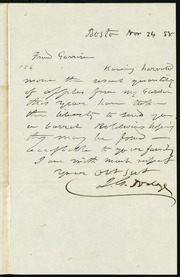 Boston Nov 24 58
Friend Garrison
Having harvested
more than the usual quantity
of apples from my Garden
this year have taken
the liberty to send you
a barrel Baldwins hoping
they may be found
acceptable to your family
I am with much respect
Your Obt Svt